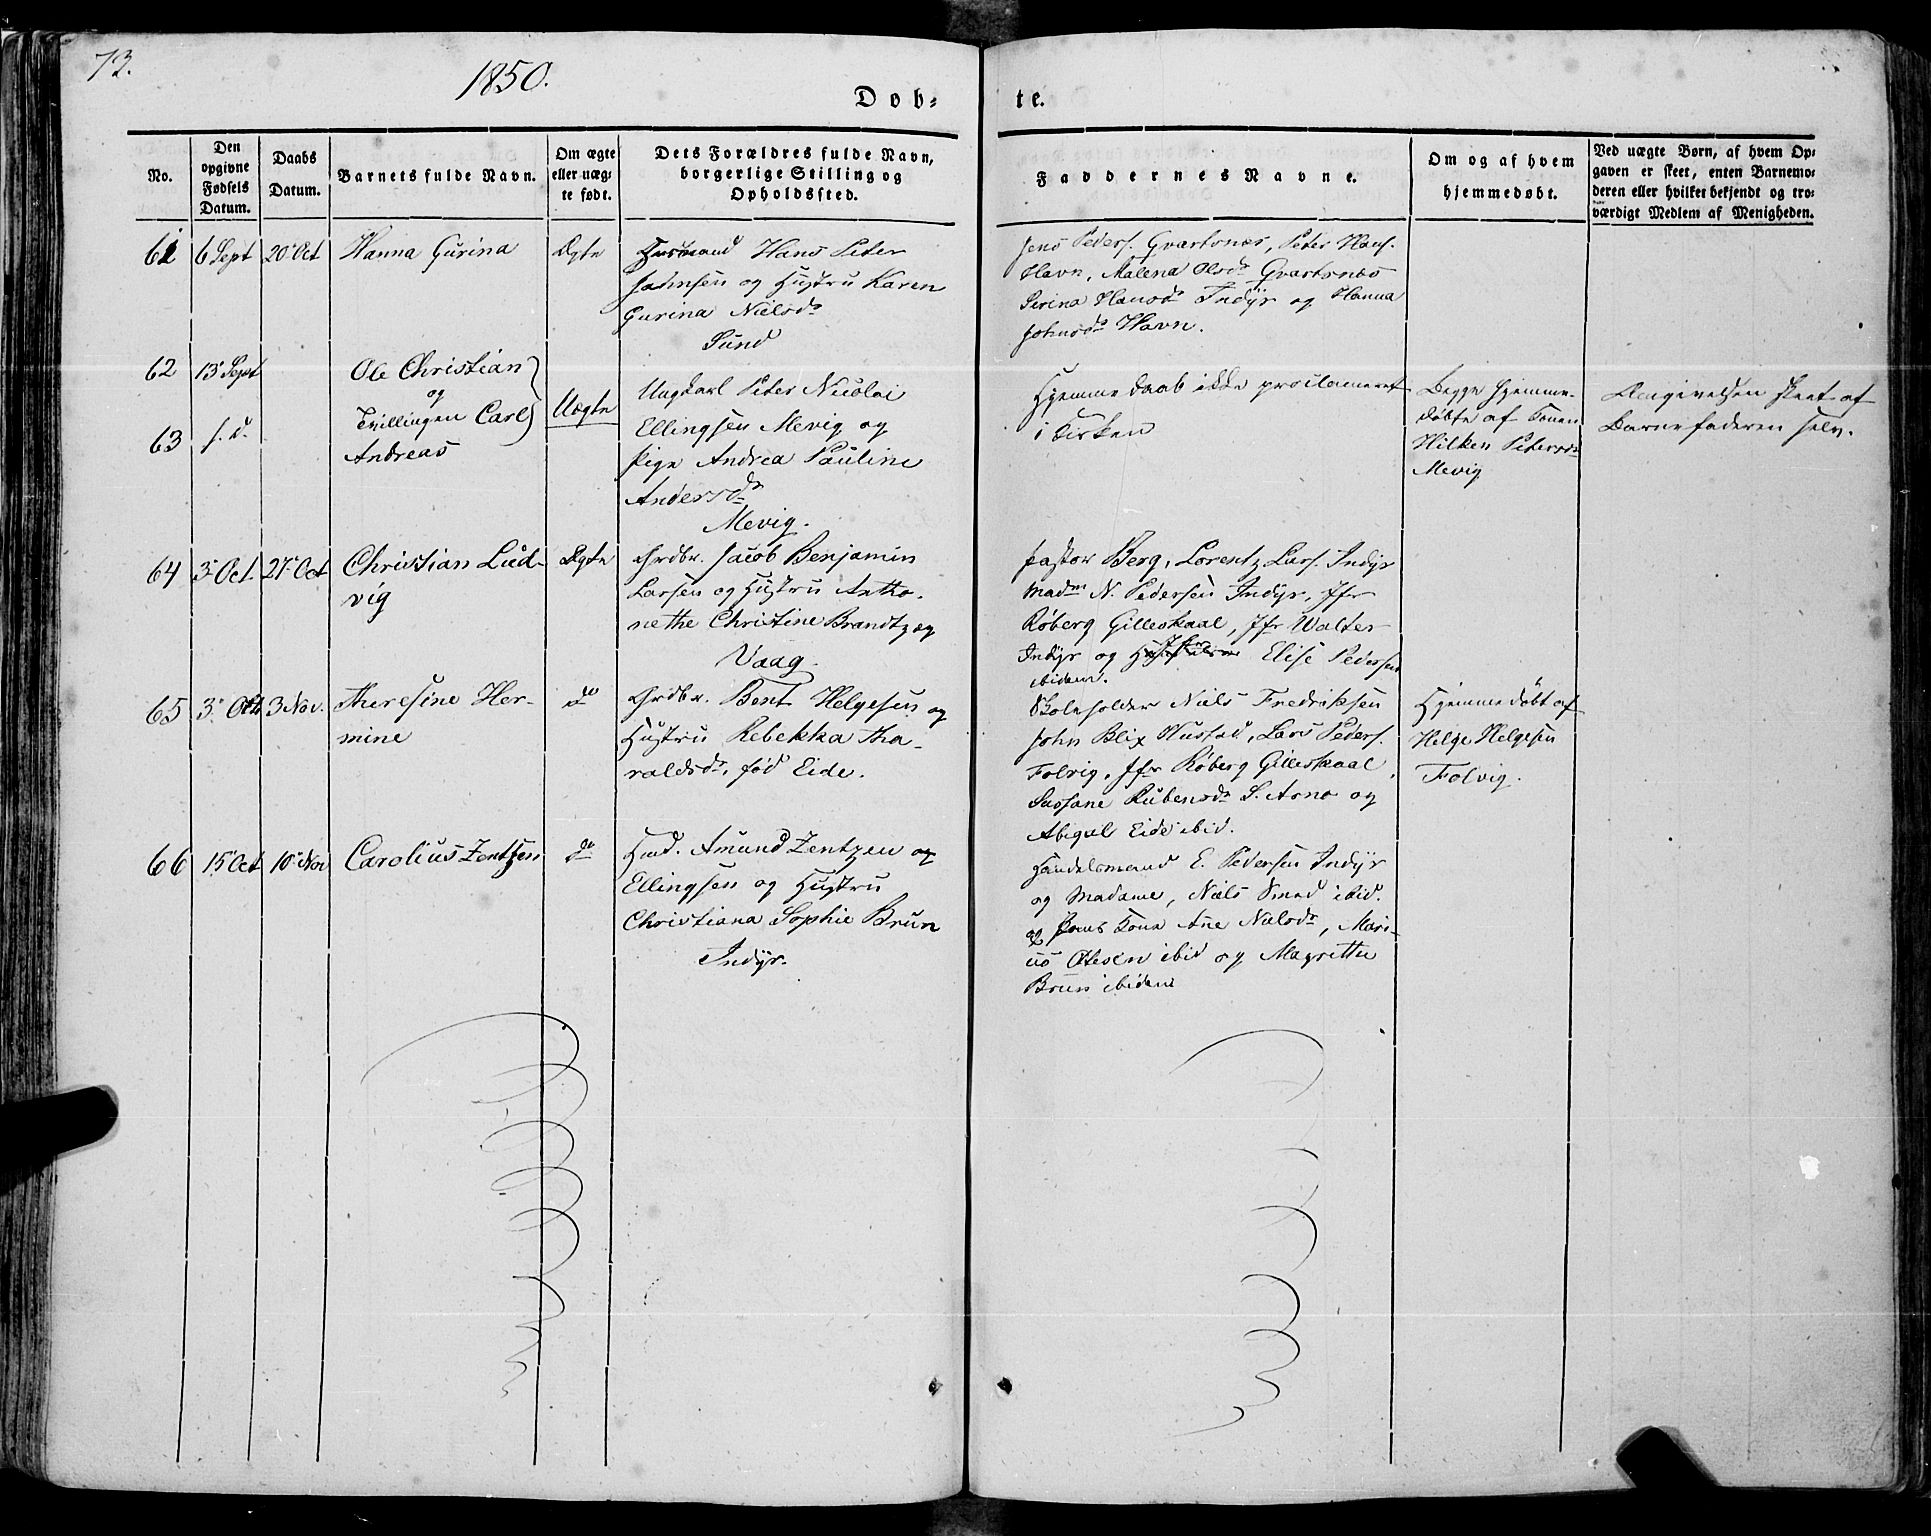 73.
1850.
Dob-
te.
No.
Den
opgivne
Fødsels
Datum.
Daabs
Datum.
Barnets fulde Navn.
Om ægte
eller uæg-
te født.
Dets Forældres fulde Navn,
borgerlige Stilling og
Opholdssted.
Faddernes Navne.
Om og af hvem
hjemmedøbt.
Ved uægte Børn, af hvem Op-
gaven er skeet, enten Barnemo-
deren eller hvilket bekjendt og tro-
værdigt Medlem af Menigheden.
61
6 Sept
20 Oct
Hanna Gurina
Ægte
Husmand Hans Peter
Johnsen og Hustru Karen
Gurina Nielsdr
Sund
Jens Peders. Gvartsnæs, Peter Hans.
Havn, Malena Olsdr Gvartsnæs
Serina Hansdr Indÿr og Hanna
Johnsdr Havn.
62
13 Sept
63
s. d.
Ole Christian
og
Tvillingen Carl
Andreas
Uægte
Ungkarl Peter Nicolai
Ellingsen Mevig og
Pige Andrea Pauline
Andersdr
Mevig.
Hjemmedaab ikke proclameret
i Kirken
Begge hjemme-
døbte af Konen
Hilken Petersdr
Mevig
Angivelsen skeet af
Barnefaderen selv.
64
3 Oct.
27 Oct
Christian Lud-
vig
Ægte
Grdbr. Jacob Benjamin
Larsen og Hustru Antho-
nethe Christine Brandtzæg
Vaag.
Pastor Berg, Lorentz Lars. Indÿr
Madm N. Pedersen Indÿr, Jfr
Røberg Gilleskaal, Jfr Walter
Indÿr og Jfr Elise Pedersen
ibidem.
65
3 Octb
3 Nov.
Theresine Her-
mine
do
Grdbr. Bent Helgesen og
Hustru Rebekka Tha-
raldsdr, fød Eide.
Skoleholder Niels Fredriksen
John Blix Hustad, Lars Peders.
Folvig, Jfr Røberg Gilleskaal,
Sussane Rubensdr S. Arnø og
Abigael Eide ibid.
Hjemmedøbt af
Helge Helgesen
Folvig.
66
15 Oct
10 Nov
Carolius Zentzen
do
Hmd. Amund Zentzen og
Ellingsen og Hustru
Christiana Sophie Brun
Indÿr.
Handelsmand E. Pedersen Indÿr
og Madame, Niels Smed ibid.
og Kone Ane Nielsdr, Mari-
us Otesen ibid og Magrethe
Brun ibidem